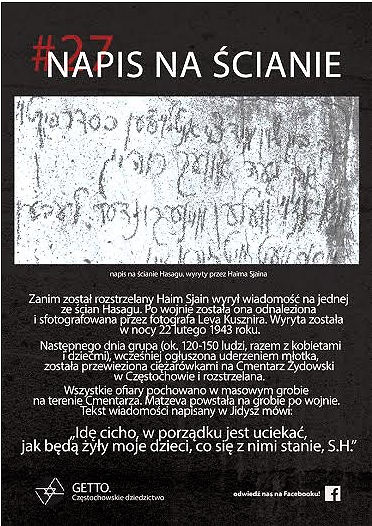 #27
NAPIS NA ŚCIANIE
napis na ścianie Hasagu, wyryty przez Haima Sjaina
Zanim został rozstrzelany Haim Sjain wyrył wiadomość na jednej
ze ścian Hasagu. Po wojnie została ona odnaleziona
i sfotografowana przez fotografa Leva Kusznira. Wyryta została
w nocy 22 lutego 1943 roku.
Następnego dnia grupa (ok. 120-150 ludzi, razem z kobietami
i dziećmi), wcześniej ogłuszona uderzeniem młotka,
została przewieziona ciężarówkami na Cmentarz Żydowski
w Częstochowie i rozstrzelana.
Wszystkie ofiary pochowano w masowym grobie
na terenie Cmentarza. Matzeva powstała na grobie po wojnie.
Tekst wiadomości napisany w Jidysz mówi:
„Idę cicho, w porządku jest uciekać,
jak będą żyły moje dzieci, co się z nimi stanie, S.H.”
GETTO.
Częstochowskie dziedzictwo
odwiedź nas na Facebooku!